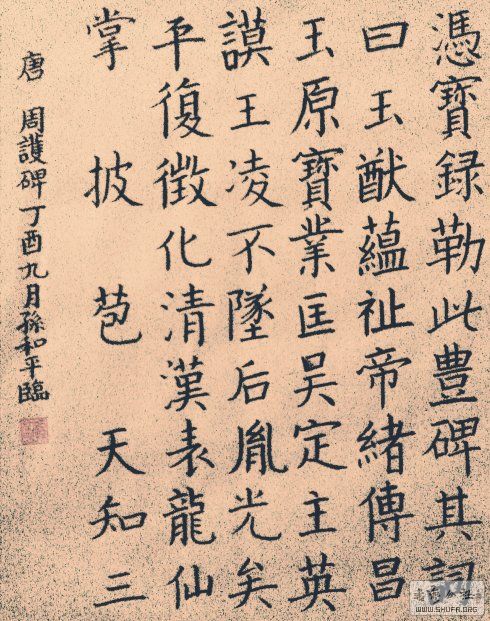 憑寶録勒此豊碑其詞
曰玉猷蘊祉帝緒傳昌
玉原寶業匡吴定主英
謨王凌不墜后胤光矣
平復徵化清漢表龍仙
掌 披 苞 天知三
唐 周護碑丁酉九月孫和平臨
WWW.SHUFA.ORG